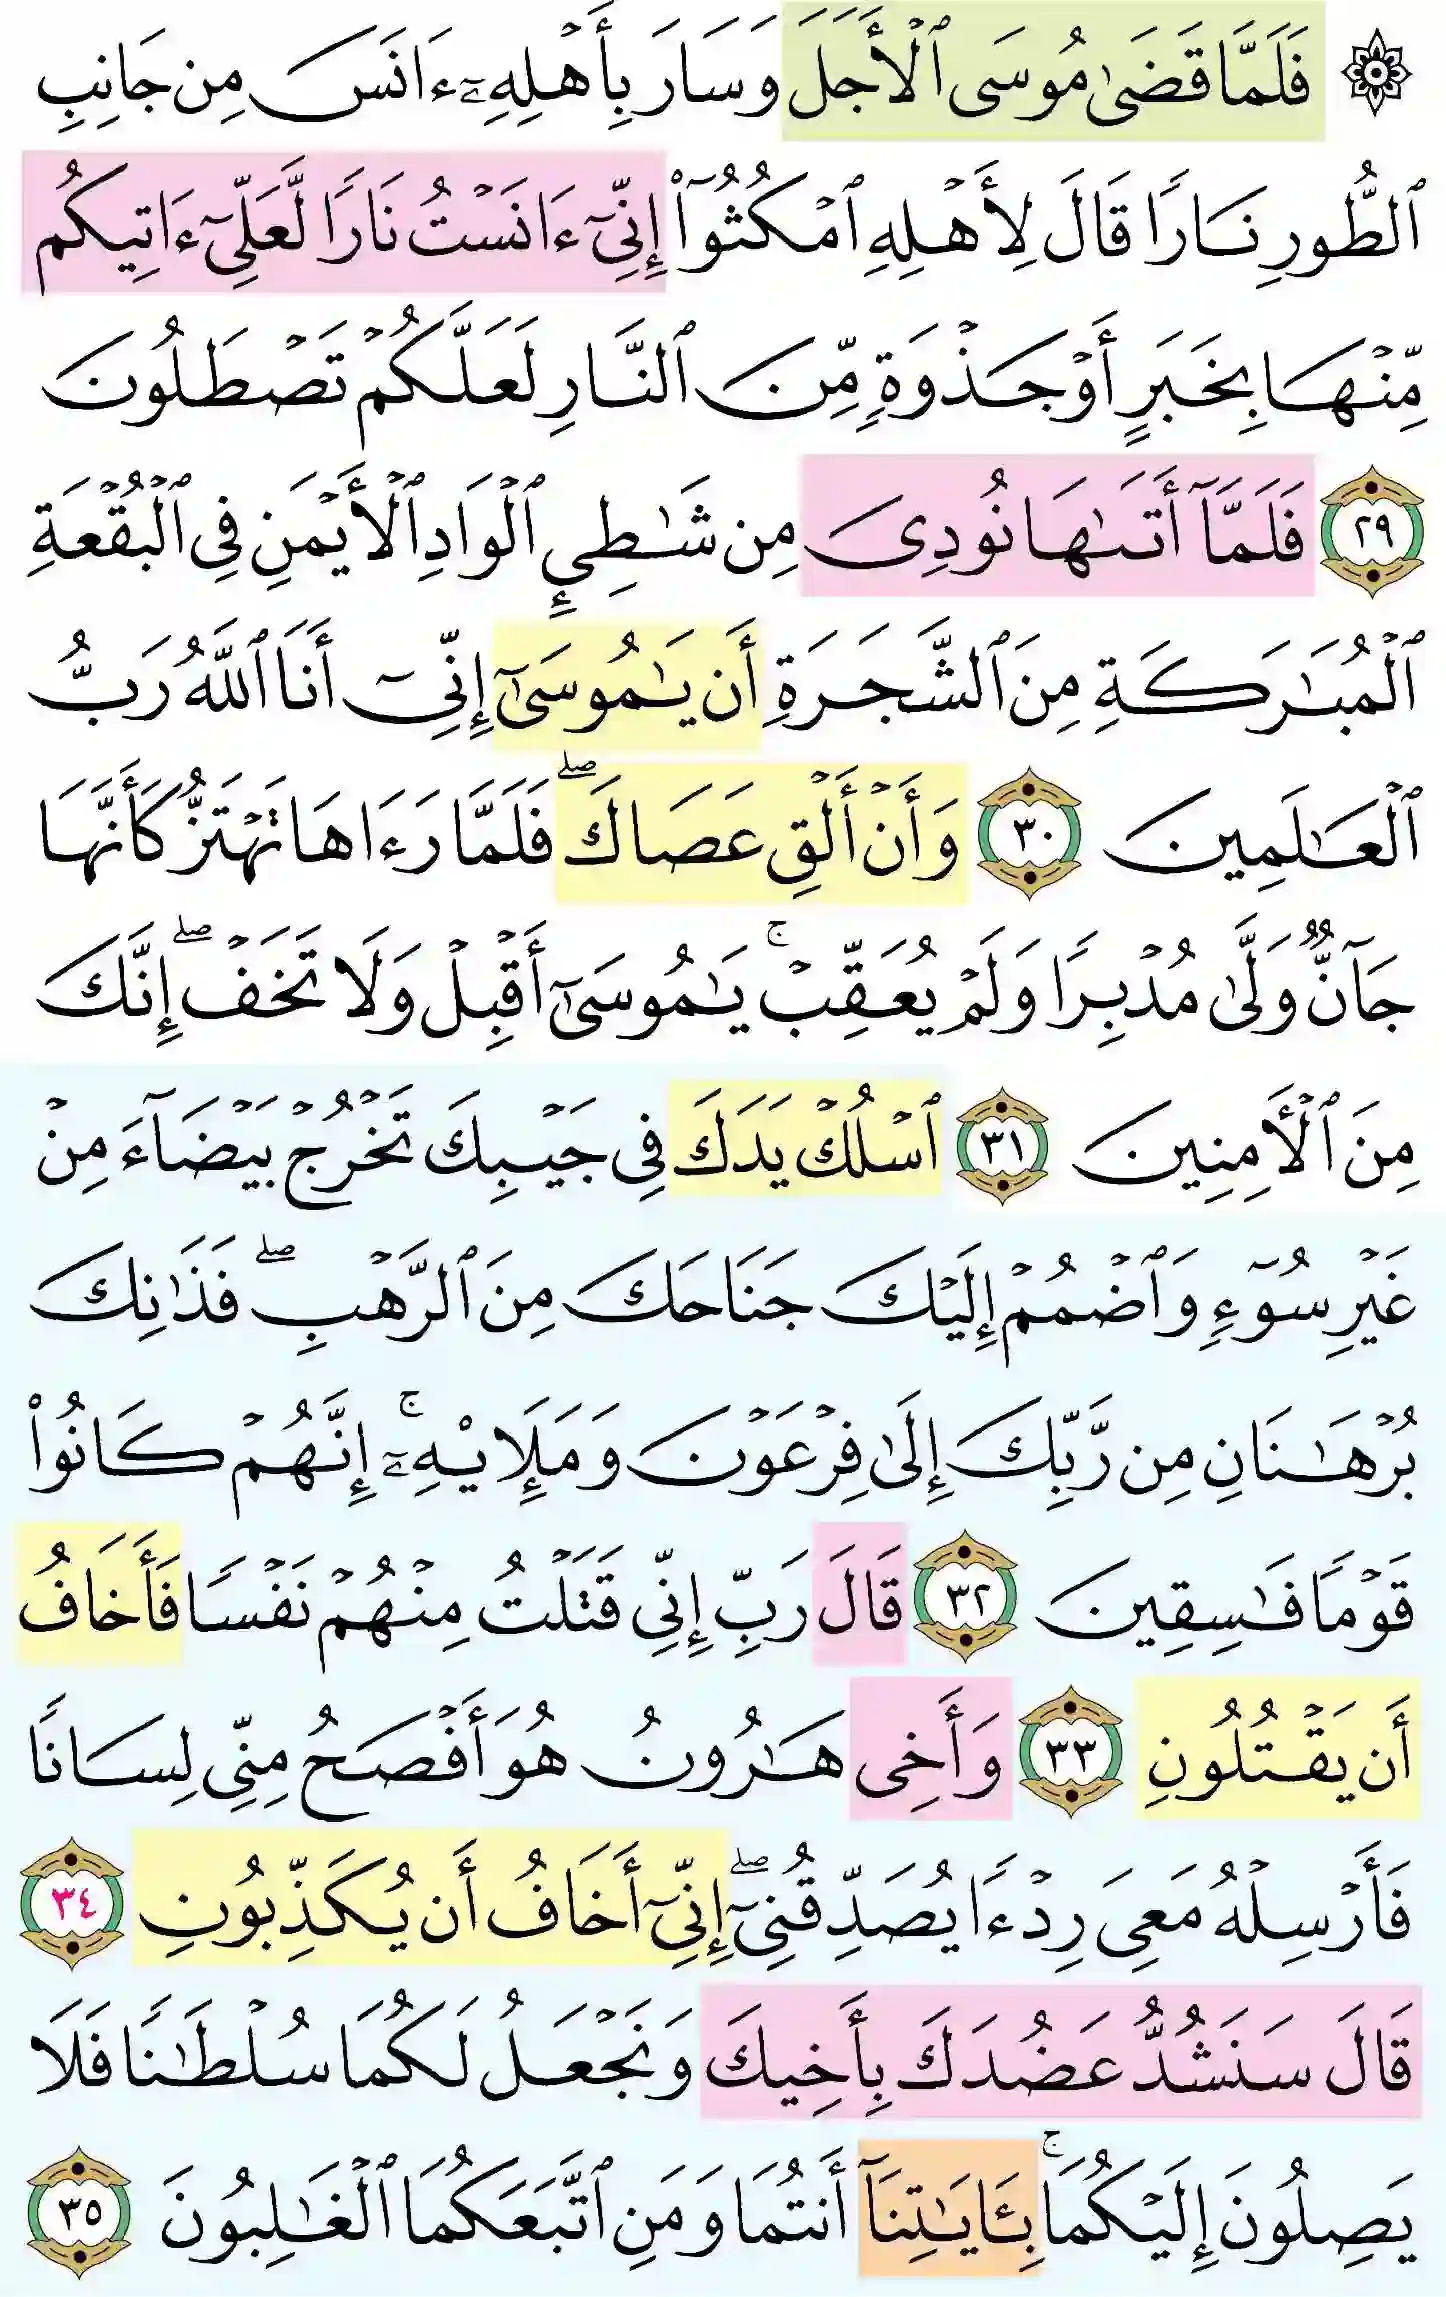 ۞ فَلَمَّا قَضَىٰ مُوسَى ٱلْأَجَلَ وَسَارَ بِأَهْلِهِۦٓ ءَانَسَ مِن جَانِبِ
ٱلطُّورِ نَارًا قَالَ لِأَهْلِهِ ٱمْكُثُوٓا۟ إِنِّىٓ ءَانَسْتُ نَارًا لَّعَلِّىٓ ءَاتِيكُم
مِّنْهَا بِخَبَرٍ أَوْ جَذْوَةٍ مِّنَ ٱلنَّارِ لَعَلَّكُمْ تَصْطَلُونَ
٢٩ فَلَمَّآ أَتَىٰهَا نُودِىَ مِن شَٰطِئِ ٱلْوَادِ ٱلْأَيْمَنِ فِى ٱلْبُقْعَةِ
ٱلْمُبَٰرَكَةِ مِنَ ٱلشَّجَرَةِ أَن يَٰمُوسَىٰٓ إِنِّىٓ أَنَا ٱللَّهُ رَبُّ
ٱلْعَٰلَمِينَ ٣٠ وَأَنْ أَلْقِ عَصَاكَ ۖ فَلَمَّا رَءَاهَا تَهْتَزُّ كَأَنَّهَا
جَآنٌّ وَلَّىٰ مُدْبِرًا وَلَمْ يُعَقِّبْ ۚ يَٰمُوسَىٰٓ أَقْبِلْ وَلَا تَخَفْ ۖ إِنَّكَ
مِنَ ٱلْأَمِنِينَ ٣١ ٱسْلُكْ يَدَكَ فِى جَيْبِكَ تَخْرُجْ بَيْضَآءَ مِنْ
غَيْرِ سُوٓءٍ وَٱضْمُمْ إِلَيْكَ جَنَاحَكَ مِنَ ٱلرَّهْبِ ۖ فَذَٰنِكَ
بُرْهَٰنَانِ مِن رَّبِّكَ إِلَىٰ فِرْعَوْنَ وَمَلَإِي۟هِۦٓ ۚ إِنَّهُمْ كَانُوا۟
قَوْمًا فَٰسِقِينَ ٣٢ قَالَ رَبِّ إِنِّى قَتَلْتُ مِنْهُمْ نَفْسًا فَأَخَافُ
أَن يَقْتُلُونِ ٣٣ وَأَخِى هَٰرُونُ هُوَ أَفْصَحُ مِنِّى لِسَانًا
فَأَرْسِلْهُ مَعِىَ رِدْءًا يُصَدِّقُنِىٓ ۖ إِنِّىٓ أَخَافُ أَن يُكَذِّبُونِ ٣٤
قَالَ سَنَشُدُّ عَضُدَكَ بِأَخِيكَ وَنَجْعَلُ لَكُمَا سُلْطَٰنًا فَلَا
يَصِلُونَ إِلَيْكُمَا ۚ بِـَٔايَٰتِنَآ أَنتُمَا وَمَنِ ٱتَّبَعَكُمَا ٱلْغَٰلِبُونَ ٣٥